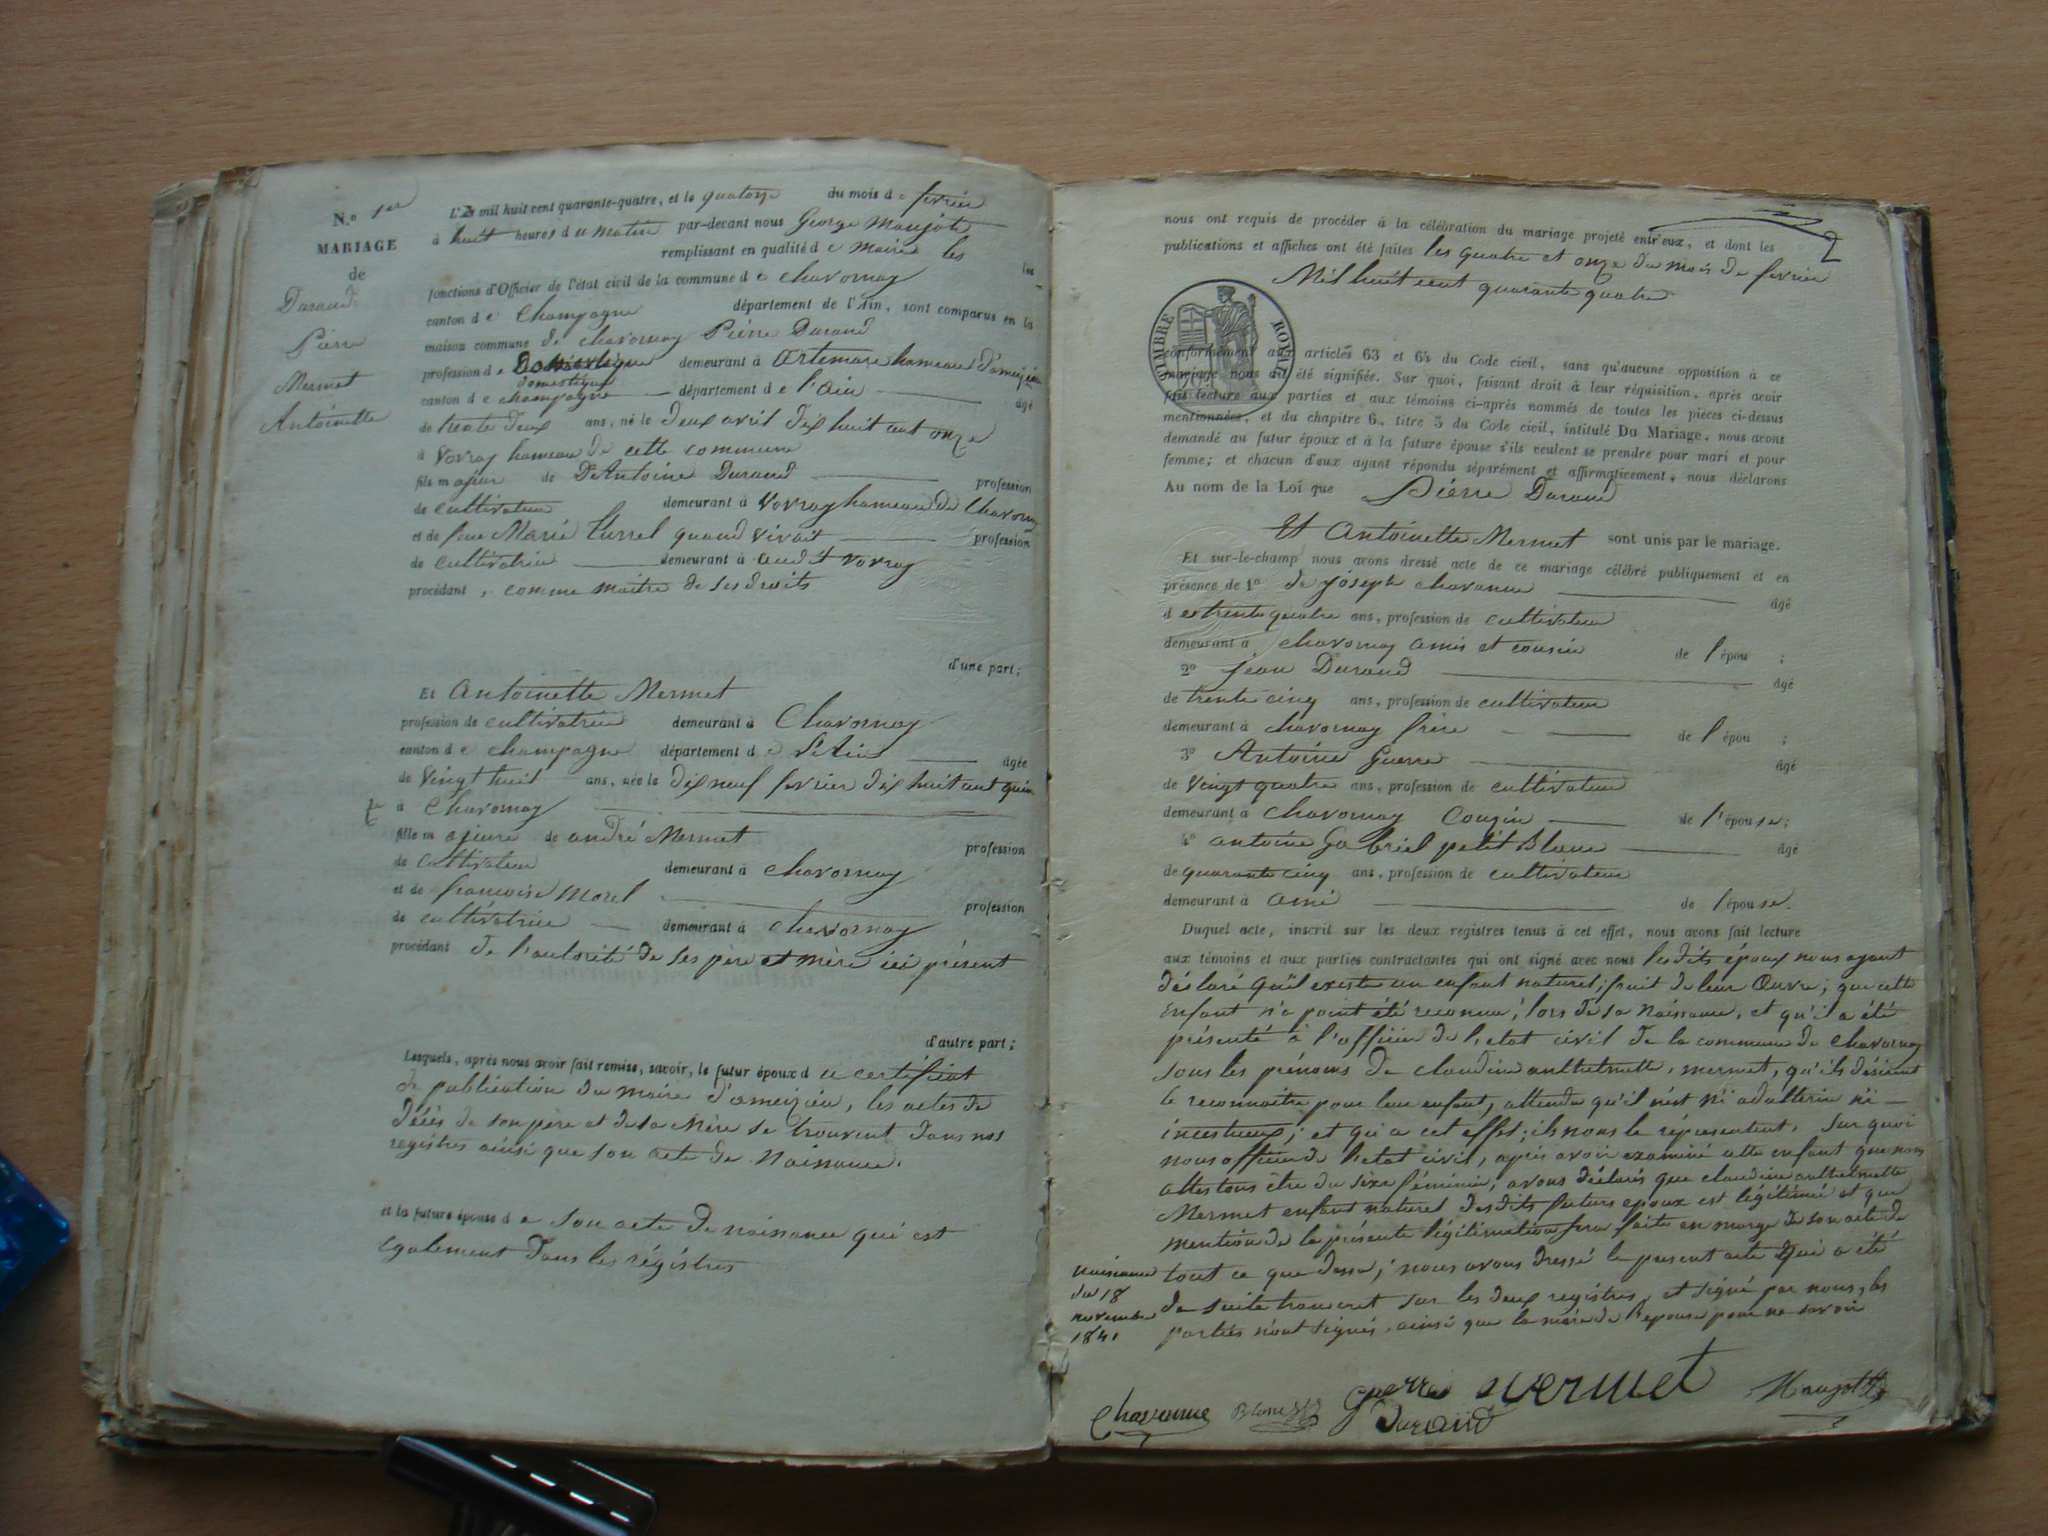 N.o 1er
MARIAGE
de
Durand
Pierre
Mermet
Antoinette
L'an mil huit cent quarante-quatre, et le quatorze du mois de février
à huit heures du matin par-devant nous George Maujot
remplissant en qualité de maire les
fonctions d'Officier de l'état civil de la commune de chavornay
canton de Champagne département de l'Ain, sont comparus en la
maison commune de chavornay Pierre Durand
profession de Domestique demeurant à Artemare hameau d'ameyzieu
domestique
canton de champagne département de l'ain âgé
de trente deux ans, né le deux avril dix huit cent onze
à Vovray hameau de cette commune
fils majeur de De Antoine Durand profession
de cultivateur demeurant à Vovray hameau de Chavornay
et de feue Marie Turrel quand vivait profession
de cultivatrice demeurant à audit Vovray
procédant, comme maitre de ses droits
d'une part;
Et Antoinette Mermet
profession de cultivatrice demeurant à Chavornay
canton de champagne département de L'Ain âgée
de Vingt huit ans, née le dix neuf fevrier dix huit cent quin
à Chavornay
fille majeure de andré Mermet profession
de cultivateur demeurant à chavornay
et de francoise Morel profession
de cultivatrice demeurant à chavornay
procédant de l'autorité de ses père et mère ici présent
d'autre part;
Lesquels, après nous avoir fait remise, savoir, le futur époux du certificat
de publication du maire d'ameyzieu, les actes de
décès de son père et de sa Mère se trouvent dans nos
registres ainsi que son acte de Naissance.
et la future épouse de son acte de naissance qui est
egalement dans les régistres
2
nous ont requis de procéder à la célébration du mariage projeté entr'eux, et dont les
publications et affiches ont été faites les quatre et onze du mois de fevrier
Mil huit cent quarante quatre
TIMBRE ROYAL
conformément aux articles 63 et 64 du Code civil, sans qu'aucune opposition à ce
mariage nous ait été signifiée. Sur quoi, faisant droit à leur réquisition, après avoir
fait lecture aux parties et aux témoins ci-après nommés de toutes les pièces ci-dessus
mentionnées, et du chapitre 6, titre 5 du Code civil, intitulé Du Mariage, nous avons
demandé au futur époux et à la future épouse s'ils veulent se prendre pour mari et pour
femme; et chacun d'eux ayant répondu séparément et affirmativement, nous déclarons
Au nom de la Loi que Pierre Durand
Et Antoinette Mermet sont unis par le mariage.
Et sur-le-champ nous avons dressé acte de ce mariage célébré publiquement et en
présence de 1o de Joseph Chavanne âgé
de trente quatre ans, profession de cultivateur
demeurant à chavornay amis et cousin de l'épou ;
2o Jean Durand âgé
de trente cinq ans, profession de cultivateur
demeurant à chavornay frère de l'épou ;
3o Antoine Guerre âgé
de Vingt quatre ans, profession de cultivateur
demeurant à chavornay Cousin de l'épouse;
4o antoine Gabriel petit Blanc âgé
de quarante cinq ans, profession de cultivateur
demeurant à ami de l'épouse.
Duquel acte, inscrit sur les deux registres tenus à cet effet, nous avons fait lecture
aux témoins et aux parties contractantes qui ont signé avec nous lesdits époux nous ayant
déclaré qu'il existe un enfant naturel; fruit de leur Œuvre; que cette
Enfant n'a point été reconnue, lors de sa Naissance, et qu'il a été
présenté à l'officier de l'etat civil de la commune de Chavornay
sous les prénoms de claudine anthelmette, mermet, qu'ils désirent
le reconnoitre pour leur enfant, attendu qu'il n'est ni adulterin ni
incestueux; et qu'a cet effet; ils nous le réprésentent. Sur quoi
nous officier de l'etat civil, après avoir examiné cette enfant que nous
attestons être du sexe féminin, avons déclaré que claudine anthelmette
Mermet enfant naturel desdits futurs epoux est légitimé et que
mention de la présente légitimation sera faite en marge de son acte de
naissance du 18 novembre 1841
tout ce que dessu, nous avons dressé le present acte qui a été
de suite transcret sur les deux registres, et signé par nous, les
parties n'ont signés, ainsi que la mère de l'epouse pour ne savoir
Chavanne Blanc Guerre Mermet Maujot
Durand